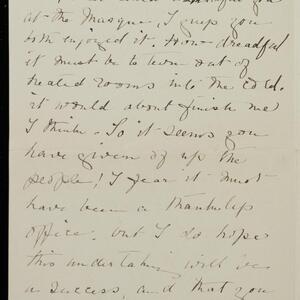 at the Masque, I hope you
both enjoyed it. How dreadful
it must be to turn out of
heated rooms into the cold.
it would about finish me
I think. So it seems you
have given up the
people! I fear it must
have been a thankless
office. but I do hope
this undertaking will be
a success, and that you